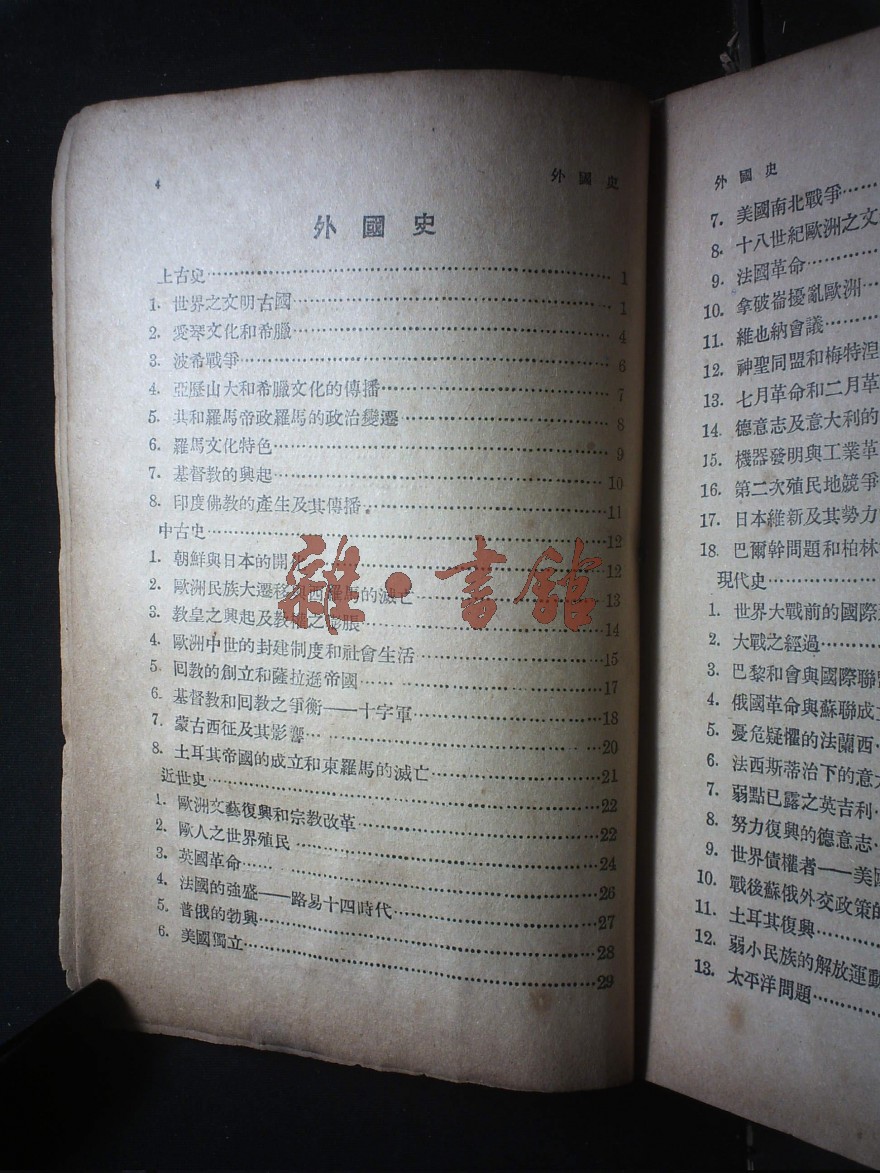 4
外國史
外國史
上古史……1
1. 世界之文明古國……1
2. 愛琴文化和希臘……4
3. 波希戰爭……6
4. 亞歷山大和希臘文化的傳播……7
5. 共和羅馬帝政羅馬的政治變遷……8
6. 羅馬文化特色……9
7. 基督教的興起……10
8. 印度佛教的產生及其傳播……11
中古史……12
1. 朝鮮與日本的開……12
2. 歐洲民族大遷移與西羅馬的滅亡……13
3. 教皇之興起及教權之膨脹……14
4. 歐洲中世的封建制度和社會生活……15
5. 回教的創立和薩拉遜帝國……17
6. 基督教和回教之爭衡——十字軍……18
7. 蒙古西征及其影響……20
8. 土耳其帝國的成立和東羅馬的滅亡……21
近世史……22
1. 歐洲文藝復興和宗教改革……22
2. 歐人之世界殖民……24
3. 英國革命……26
4. 法國的強盛——路易十四時代……27
5. 普俄的勃興……28
6. 美國獨立……29
雜·書館
外國史
7. 美國南北戰爭……
8. 十八世紀歐洲之文
9. 法國革命……
10. 拿破崙擾亂歐洲……
11. 維也納會議……
12. 神聖同盟和梅特涅
13. 七月革命和二月革
14. 德意志及意大利的
15. 機器發明與工業革
16. 第二次殖民地競爭
17. 日本維新及其勢力
18. 巴爾幹問題和柏林
現代史……
1. 世界大戰前的國際
2. 大戰之經過……
3. 巴黎和會與國際聯
4. 俄國革命與蘇聯成立
5. 憂危疑懼的法蘭西
6. 法西斯蒂治下的意
7. 弱點已露之英吉利
8. 努力復興的德意志
9. 世界債權者——美
10. 戰後蘇俄外交政策的
11. 土耳其復興……
12. 弱小民族的解放運動
13. 太平洋問題……